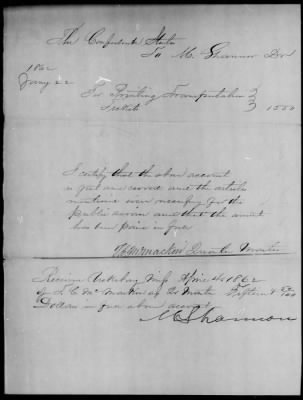 The Confederate States
To M. Shannon Dr
1862
Jany 22
For Printing Transportation
Tickets 1500
I certify that the above account
is just and correct and the articles
mentioned were necessary for the
public service and that the amount
has been paid in full
Quarter Master
Received Vicksburg Miss April 4, 1862
of T. C. McMackin Qr Master Fifteen & 00/100
Dollars in full above account
M Shannon